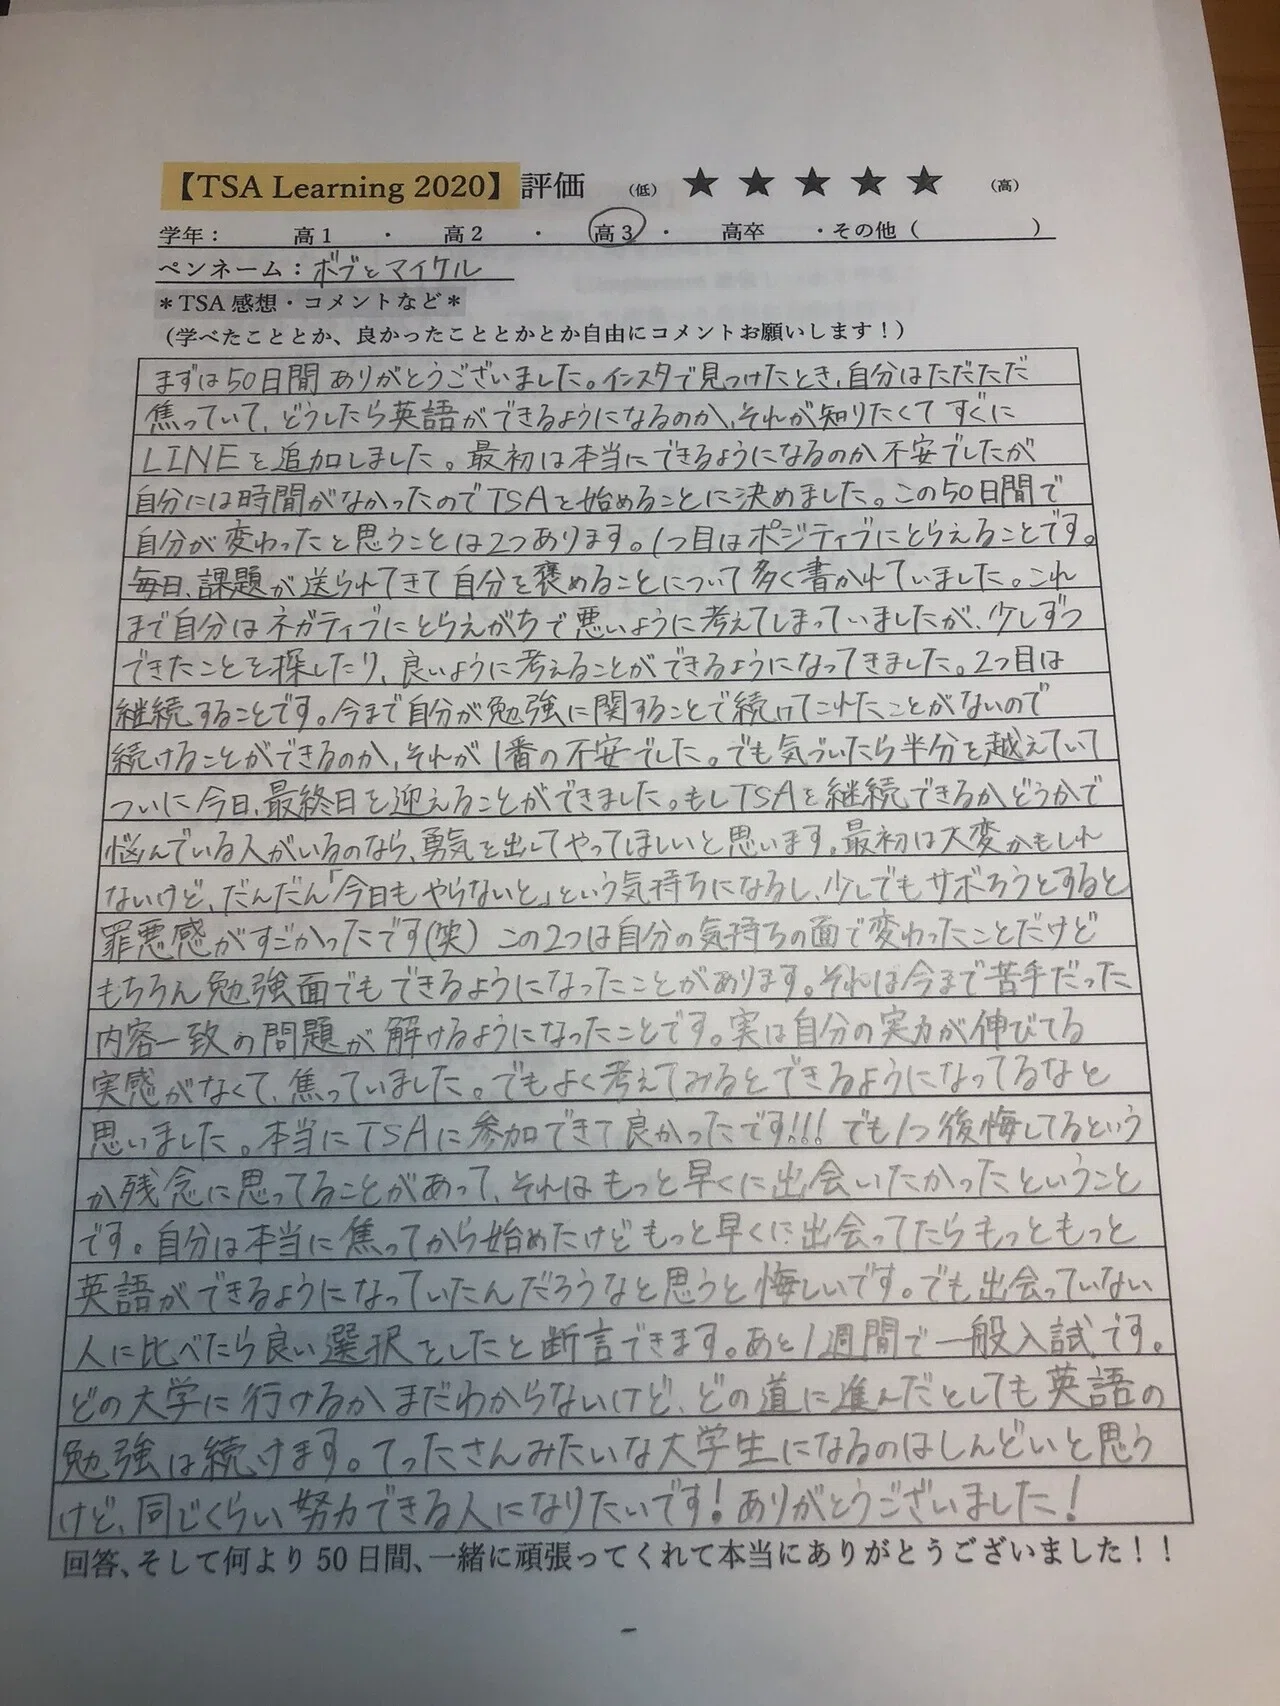 【TSA Learning 2020】評価 （低） ★ ★ ★ ★ ★ （高）
学年： 高1 ・ 高2 ・ 高3 ・ 高卒 ・その他（ ）
ペンネーム：ボブとマイケル
＊TSA 感想・コメントなど＊
（学べたこととか、良かったこととかとか自由にコメントお願いします！）
まずは50日間ありがとうございました。インスタで見つけたとき、自分はただただ
焦っていて、どうしたら英語ができるようになるのか、それが知りたくてすぐに
LINEを追加しました。最初は本当にできるようになるのか不安でしたが
自分には時間がなかったのでTSAを始めることに決めました。この50日間で
自分が変わったと思うことは2つあります。1つ目はポジティブにとらえることです。
毎日、課題が送られてきて自分を褒めることについて多く書かれていました。これ
まで自分はネガティブにとらえがちで悪いように考えてしまっていましたが、少しずつ
できたことを探したり、良いように考えることができるようになってきました。2つ目は
継続することです。今まで自分が勉強に関することで続けてこれたことがないので
続けることができるのか、それが1番の不安でした。でも気づいたら半分を越えていて
ついに今日、最終日を迎えることができました。もしTSAを継続できるかどうかで
悩んでいる人がいるのなら、勇気を出してやってほしいと思います。最初は大変かもしれ
ないけど、だんだん「今日もやらないと」という気持ちになるし、少しでもサボろうとすると
罪悪感がすごかったです(笑) この2つは自分の気持ちの面で変わったことだけど
もちろん勉強面でもできるようになったことがあります。それは今まで苦手だった
内容一致の問題が解けるようになったことです。実は自分の実力が伸びてる
実感がなくて、焦っていました。でもよく考えてみるとできるようになってるなと
思いました。本当にTSAに参加できて良かったです!!! でも1つ後悔してるという
か残念に思ってることがあって、それはもっと早くに出会いたかったということ
です。自分は本当に焦ってから始めたけどもっと早くに出会ってたらもっともっと
英語ができるようになっていたんだろうなと思うと悔しいです。でも出会っていない
人に比べたら良い選択をしたと断言できます。あと1週間で一般入試です。
どの大学に行けるかまだわからないけど、どの道に進んだとしても英語の
勉強は続けます。てったさんみたいな大学生になるのはしんどいと思う
けど、同じくらい努力できる人になりたいです！ありがとうございました！
回答、そして何より50日間、一緒に頑張ってくれて本当にありがとうございました！！